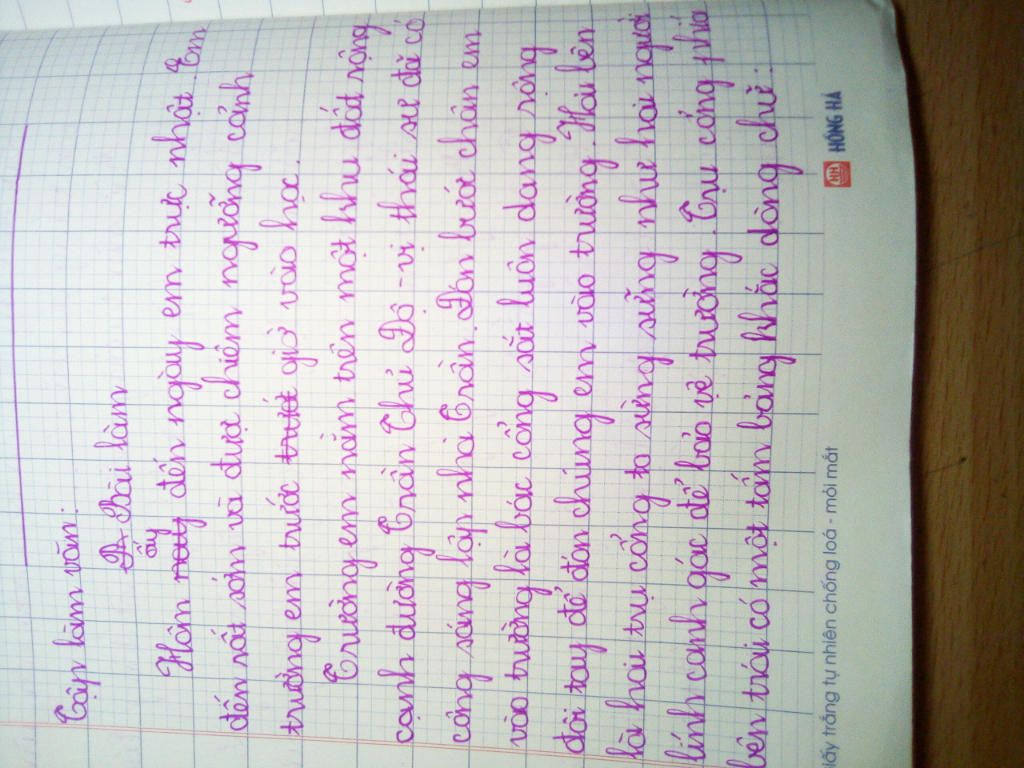 Tập làm văn:
A. Bài làm
Hôm nay ấy đến ngày em trực nhật. Em
đến rất sớm và được chiêm ngưỡng cảnh
trường em trước trướt giờ vào học.
Trường em nằm trên một khu đất rộng
cạnh đường Trần Thủ Độ - vị thái sư đã có
công sáng lập nhà Trần. Đón bước chân em
vào trường là bác cổng sắt luôn dang rộng
đôi tay để đón chúng em vào trường. Hai bên
là hai trụ cổng to sừng sững như hai người
lính canh gác để bảo vệ trường. Trụ cổng phía
bên trái có một tấm bảng khắc dòng chữ:
HH HỒNG HÀ
iấy trắng tự nhiên chống loá - mỏi mắt